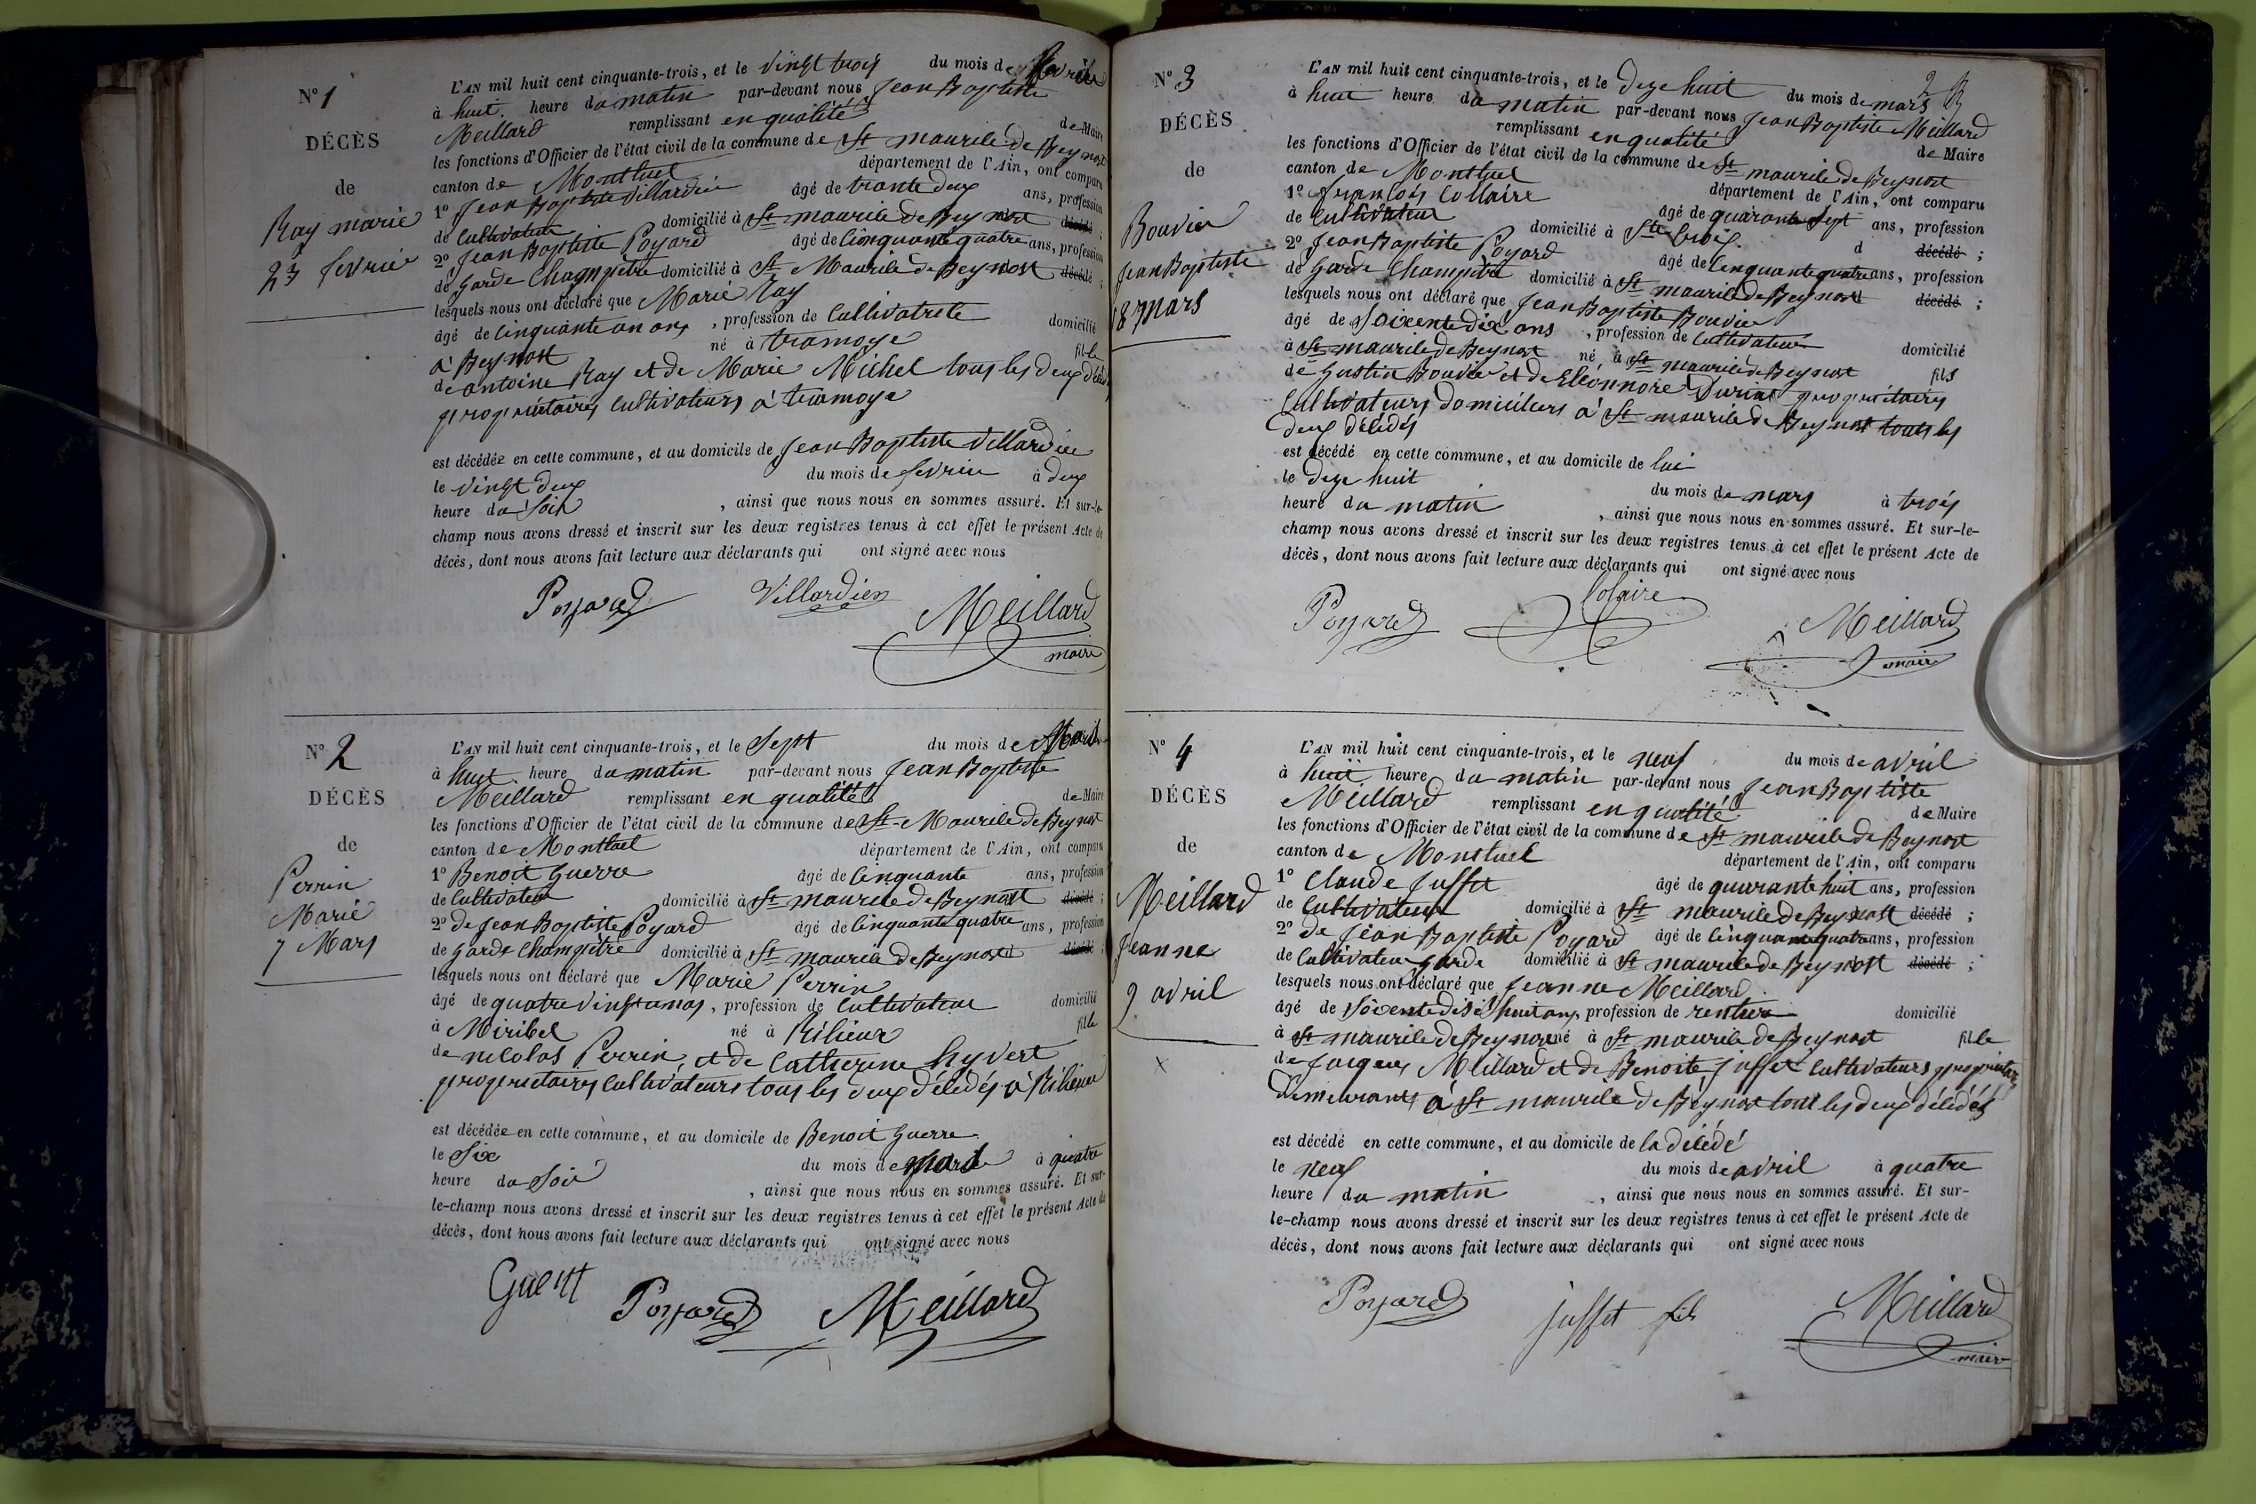 N° 1
DÉCÈS
de
Ray marie
23 fevrier
L'AN mil huit cent cinquante-trois, et le vingt trois du mois de fevrier
à huit heure du matin par-devant nous Jean Baptiste
Meillard remplissant en qualité de Maire
les fonctions d'Officier de l'état civil de la commune de St maurice de Beynost
canton de Montluel département de l'Ain, ont comparu
1° Jean Baptiste Villardier âgé de trante deux ans, profession
de Cultivateur domicilié à St maurice de Beynost décédé ;
2° Jean Baptiste Poyard âgé de Cinquante quatre ans, profession
de Garde Champetre domicilié à St Maurice de Beynost décédé ;
lesquels nous ont déclaré que Marie Ray
âgé de Cinquante un ans, profession de Cultivatrice domicilié
à Beynost né à tramoye fille
de antoine Ray et de Marie Michel tous les deux décédés
propriétaires Cultivateurs à tramoye
est décédée en cette commune, et au domicile de Jean Baptiste Villardier
le vingt deux du mois de fevrier à deux
heure du Soir, ainsi que nous nous en sommes assuré. Et sur-le-
champ nous avons dressé et inscrit sur les deux registres tenus à cet effet le présent Acte de
décès, dont nous avons fait lecture aux déclarants qui ont signé avec nous
Poyard Villardier Meillard
maire
N° 2
DÉCÈS
de
Perrin
Marie
7 Mars
L'AN mil huit cent cinquante-trois, et le Sept du mois de Mars
à huit heure du matin par-devant nous Jean Baptiste
Meillard remplissant en qualité de Maire
les fonctions d'Officier de l'état civil de la commune de St Maurice de Beynost
canton de Montluel département de l'Ain, ont comparu
1° Benoit Guerre âgé de Cinquante ans, profession
de Cultivateur domicilié à St maurice de Beynost décédé ;
2° de Jean Baptiste Poyard âgé de Cinquante quatre ans, profession
de Garde Champêtre domicilié à St maurice de Beynost décédé ;
lesquels nous ont déclaré que Marie Perrin
âgé de quatre vingt un ans, profession de Cultivateur domicilié
à Miribel né à Rilieux fille
de nicolas Perrin et de Catherine hyvert
propriétaires Cultivateurs tous les deux décédés à Rilieux
est décédée en cette commune, et au domicile de Benoit Guerre
le Six du mois de mars à quatre
heure du Soir, ainsi que nous nous en sommes assuré. Et sur-
le-champ nous avons dressé et inscrit sur les deux registres tenus à cet effet le présent Acte de
décès, dont nous avons fait lecture aux déclarants qui ont signé avec nous
Poyard Meillard
N° 3
DÉCÈS
de
Bouvier
Jean Baptiste
18 mars
L'AN mil huit cent cinquante-trois, et le Dize huit du mois de mars
à huit heure du matin par-devant nous Jean Baptiste Meillard
remplissant en qualité de Maire
les fonctions d'Officier de l'état civil de la commune de St maurice de Beynost
canton de Montluel département de l'Ain, ont comparu
1° François Collaire âgé de quarante Sept ans, profession
de Cultivateur domicilié à Ste Croix d décédé ;
2° Jean Baptiste Poyard âgé de Cinquante quatre ans, profession
de Garde Champêtre domicilié à St maurice de Beynost décédé ;
lesquels nous ont déclaré que Jean Baptiste Bouvier
âgé de Soixente Dix ans, profession de Cultivateur domicilié
à St maurice de Beynost né à St maurice de Beynost fils
de Bouvier et de Eléonnore propriétaires
Cultivateurs Domiciliers à St maurice de Beynost touts les
deux décédés
est décédé en cette commune, et au domicile de lui
le Dize huit du mois de mars à trois
heure du matin, ainsi que nous nous en sommes assuré. Et sur-le-
champ nous avons dressé et inscrit sur les deux registres tenus à cet effet le présent Acte de
décès, dont nous avons fait lecture aux déclarants qui ont signé avec nous
Poyard Colaire Meillard
maire
N° 4
DÉCÈS
de
Meillard
Jeanne
9 avril
L'AN mil huit cent cinquante-trois, et le neuf du mois de avril
à huit heure du matin par-devant nous Jean Baptiste
Meillard remplissant en qualité de Maire
les fonctions d'Officier de l'état civil de la commune de St maurice de Beynost
canton de Montluel département de l'Ain, ont comparu
1° Claude Juffet âgé de quarante huit ans, profession
de Cultivateur domicilié à St maurice de Beynost décédé ;
2° de Jean Baptiste Poyard âgé de Cinquante quatre ans, profession
de Cultivateur garde domicilié à St maurice de Beynost décédé ;
lesquels nous ont déclaré que Jeanne Meillard
âgé de Soixente dise huit ans, profession de rentiere domicilié
à St maurice de Beynost né à St maurice de Beynost fille
de Jacques Meillard et de Benoite Juffet Cultivateurs propriétaires
Demeurants à St maurice de Beynost tout les deux décédés
est décédé en cette commune, et au domicile de la décédé
le neuf du mois de avril à quatre
heure du matin, ainsi que nous nous en sommes assuré. Et sur-
le-champ nous avons dressé et inscrit sur les deux registres tenus à cet effet le présent Acte de
décès, dont nous avons fait lecture aux déclarants qui ont signé avec nous
Poyard Juffet fils Meillard
maire